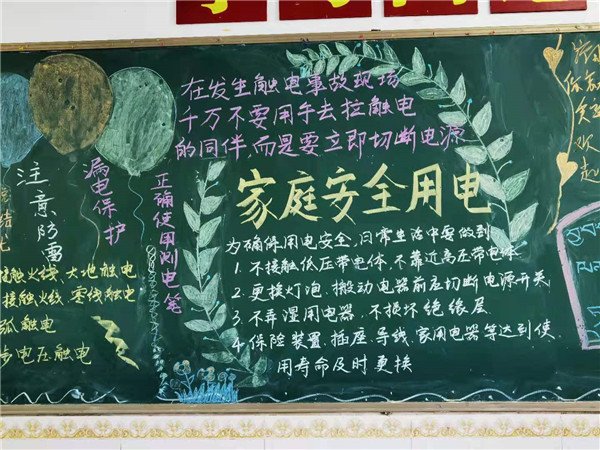 在发生触电事故现场
千万不要用手去拉触电
的同伴,而是要立即切断电源
家庭安全用电
为确保用电安全,日常生活中要做到
1.不接触低压带电体,不靠近高压带电体
2.更换灯泡、搬动电器前应切断电源开关
3.不弄湿用电器,不损坏绝缘层
4.保险装置、插座、导线、家用电器等达到使
用寿命及时更换
正确使用测电笔
漏电保护
注意防雷
接触火线、大地触电
接触火线、零线触电
弧触电
步电压触电